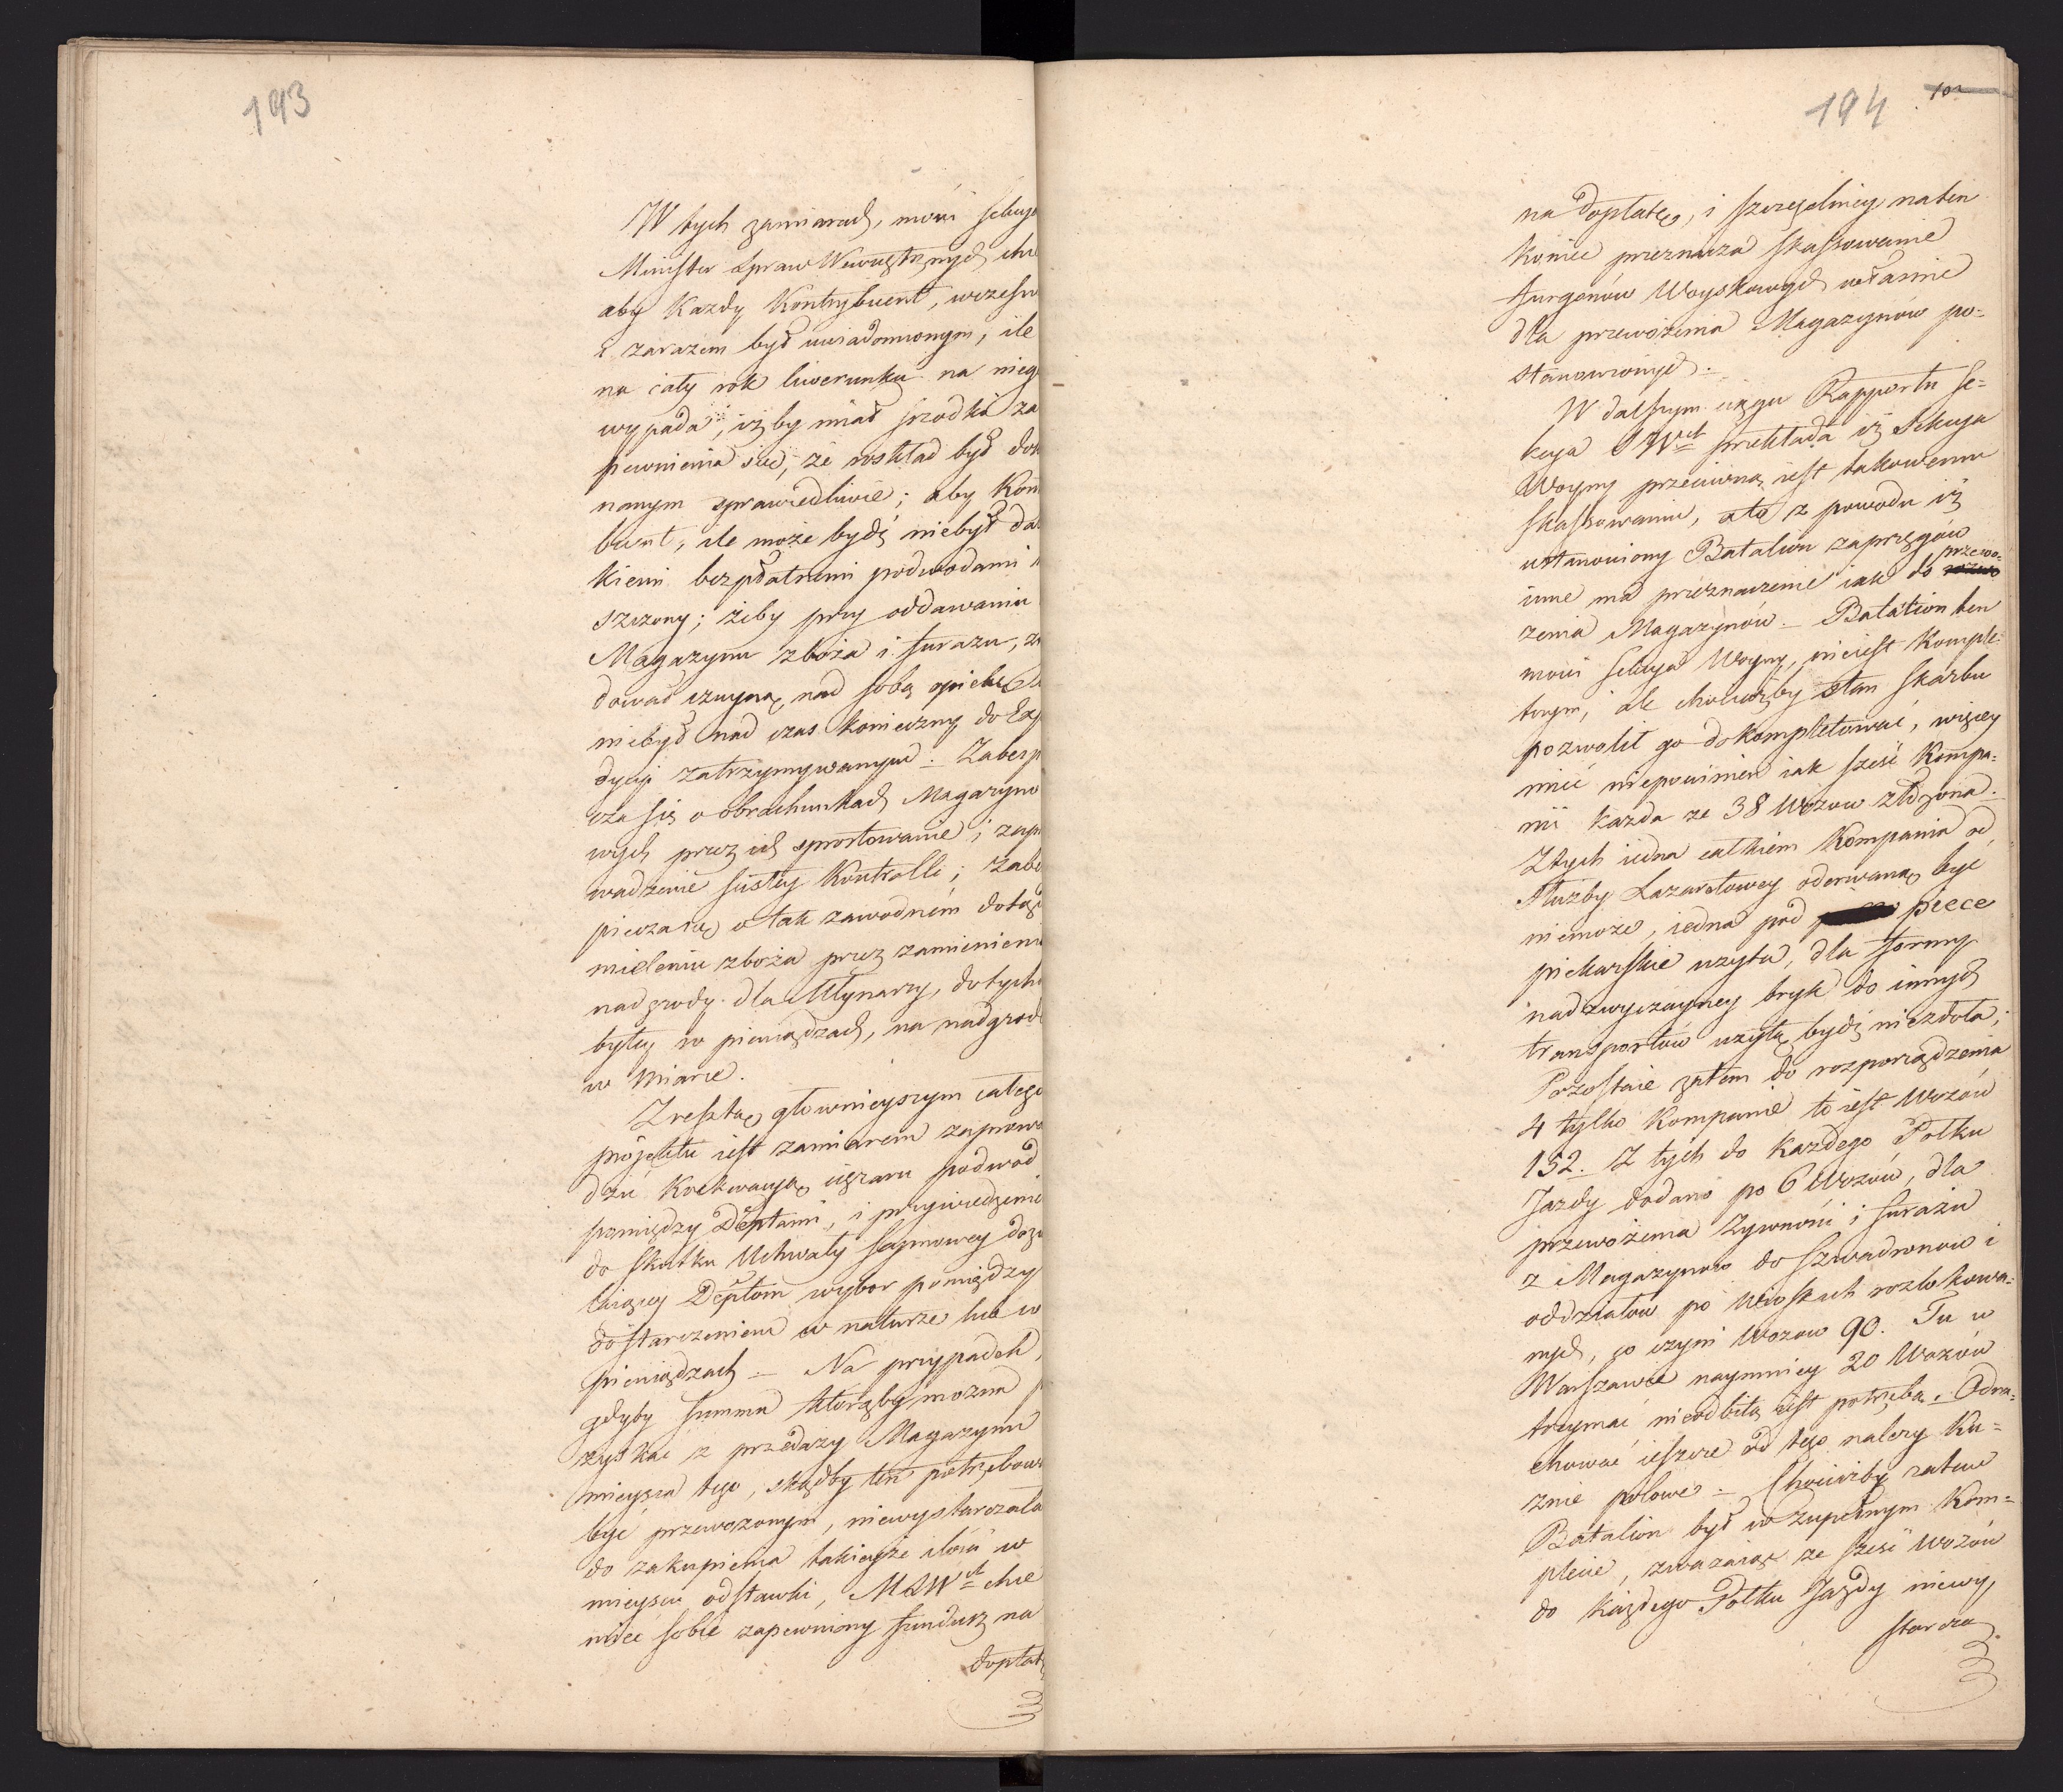 193
W tych zamiarach, mówi Sekcya
Minister Spraw Wewnętrznych chce
aby każdy Kontrybuent, wcześn
i zarazem był uwiadomionym, ile
na cały rok liwerunku na nieg
wypada, iżby miał srzodki za
pewnienia się, że roskład był dok
nanym sprawiedliwie; aby Kon
buent, ile może bydź niebył da
kiemi bezpłatnemi podwodami
szczony; żeby przy oddawaniu
Magazynu zboża i furażu, zn
dował czynną nad sobą opiekę
niebył nad czas konieczny do Exp
dycyi zatrzymywanym. Zabesp
cza się o obrachunkach Magazyno
wych przez ich sprostowanie, i zapr
wadzenie ścisłey Kontrolli; Zabe
pieczają o tak zawodném dotąd
mieleniu zboża przez zamienieni
nadgrody dla Młynarzy, dotych
byłey w pieniądzach, na nadgrod
w Miarce.
Zresztą główniejszym całego
projektu iest zamiarem zaprowa
dzić Koekwacyą ciężaru podwod
pomiędzy Deptami, i przywiedzenie
do skutku Uchwały Seymowey dozw
laiącey Deptom wybor pomiędzy
dostarczeniem w naturze lub w
pieniądzach – Na przypadek,
gdyby summa którąby można
zyskać z przedaży Magazynu
mieysca tego, skądby ten potrzebow
być przewożonym, niewystarczała
do zakupienia takieyże ilości w
mieyscu odstawki, MSWch chce
mieć sobie zapewniony fundusz na
dopłat
194 102
na dopłatę, i szczegulniey naten
koniec przeznacza skassowanie
furgonów Woyskowych właśnie
dla przewożenia Magazynów po-
stanowionych.
W dalszym ciągu Rapportu Se-
kcya SWch przekłada iż Sekcya
Woyny przeciwną iest takowemu
skassowaniu, ato z powodu iż
ustanowiony Batalion zaprzęgów
inne ma przeznaczenie iak do rozwo przewo-
żenia Magazynów – Batalion ten
mowi Sekcya Woyny, nieiest komple-
tnym, ale chociażby stan skarbu
pozwolił go dokompletować, więcey
mieć niepowinien iak sześć Kompa-
nii każda ze 38 Wozow złożona.
Z tych iedna całkiem Kompania od
służby Lazaretowey oderwaną być
niemoże, iedna pod piece
piekarskie użyta, dla formy
nadzwyczayney bryk do innych
transportów użytą bydź niezdoła;
Pozostaie zatem do rozporządzenia
4 tylko Kompanie to iest Wozów
152. Z tych do każdego Półku
Jazdy dodano po 6 Wozów, dla
przewożenia żywności i furażu
z Magazynow do szwadronow i
oddziałów po Wioskach rozlokowa-
nych, co czyni Wozow 90. Tu w
Warszawie naymniey 20 Wozów
trzymać nieodbitą iest potrzebą. Odra-
chować ieszcze od tego należy Ku-
źnie polowe – Chociażby zatem
Batalion był w zupełnym Kom-
plecie, zważaiąc że sześć wozów
do każdego Półku Jazdy niewy,
starcza